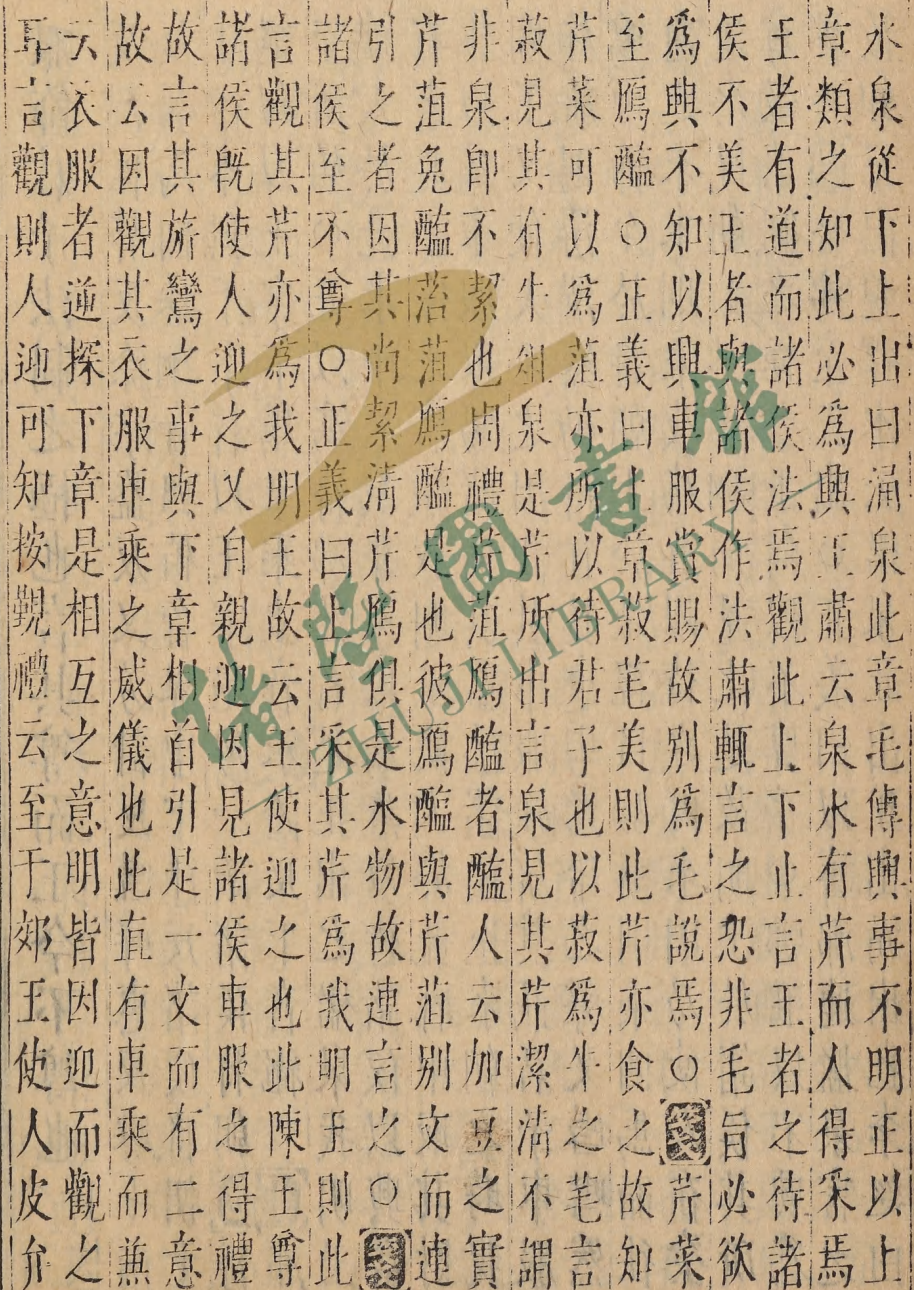 水泉從下上出曰涌泉此章毛傳興事不明正以上
章類之知此必爲興王肅云泉水有芹而人得采焉
王者有道而諸侯法焉觀此上下止言王者之待諸
侯不美王者與諸侯作法肅輒言之恐非毛旨必欲
爲興不知以興車服賞賜故別爲毛說焉○箋芹菜
至鴈醢○正義曰上章菽芼美則此芹亦食之故知
芹菜可以爲菹亦所以待君子也以菽爲牛之芼言
菽見其有牛俎泉是芹所出言泉見其芹潔清不謂
非泉卽不絜也周禮芹菹鴈醢者醢人云加豆之實
芹菹兔醢菭菹鴈醢是也彼鴈醢與芹菹別文而連
引之者因其尚絜清芹鴈俱是水物故連言之○箋
諸侯至不尊○正義曰上言采其芹爲我明王則此
言觀其芹亦爲我明王故云王使迎之也此陳王尊
諸侯旣使人迎之又自親迎因見諸侯車服之得禮
故言其旂鸞之事與下章相首引是一文而有二意
故云因觀其衣服車乘之威儀也此直有車乘而兼
云衣服者逆探下章是相互之意明皆因迎而觀之
耳言觀則人迎可知按覲禮云至于郊王使人皮弁
諸暨圖書館
ZHUJI LIBRARY